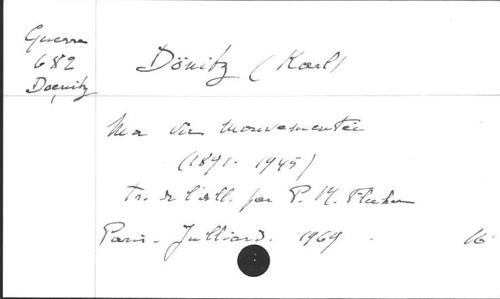 Guerre
682
Doenitz
Dönitz (Karl)
Ma vie mouvementée
(1891-1945)
Tr. de l'all. par P. M.
Paris - Julliard. 1969. 16